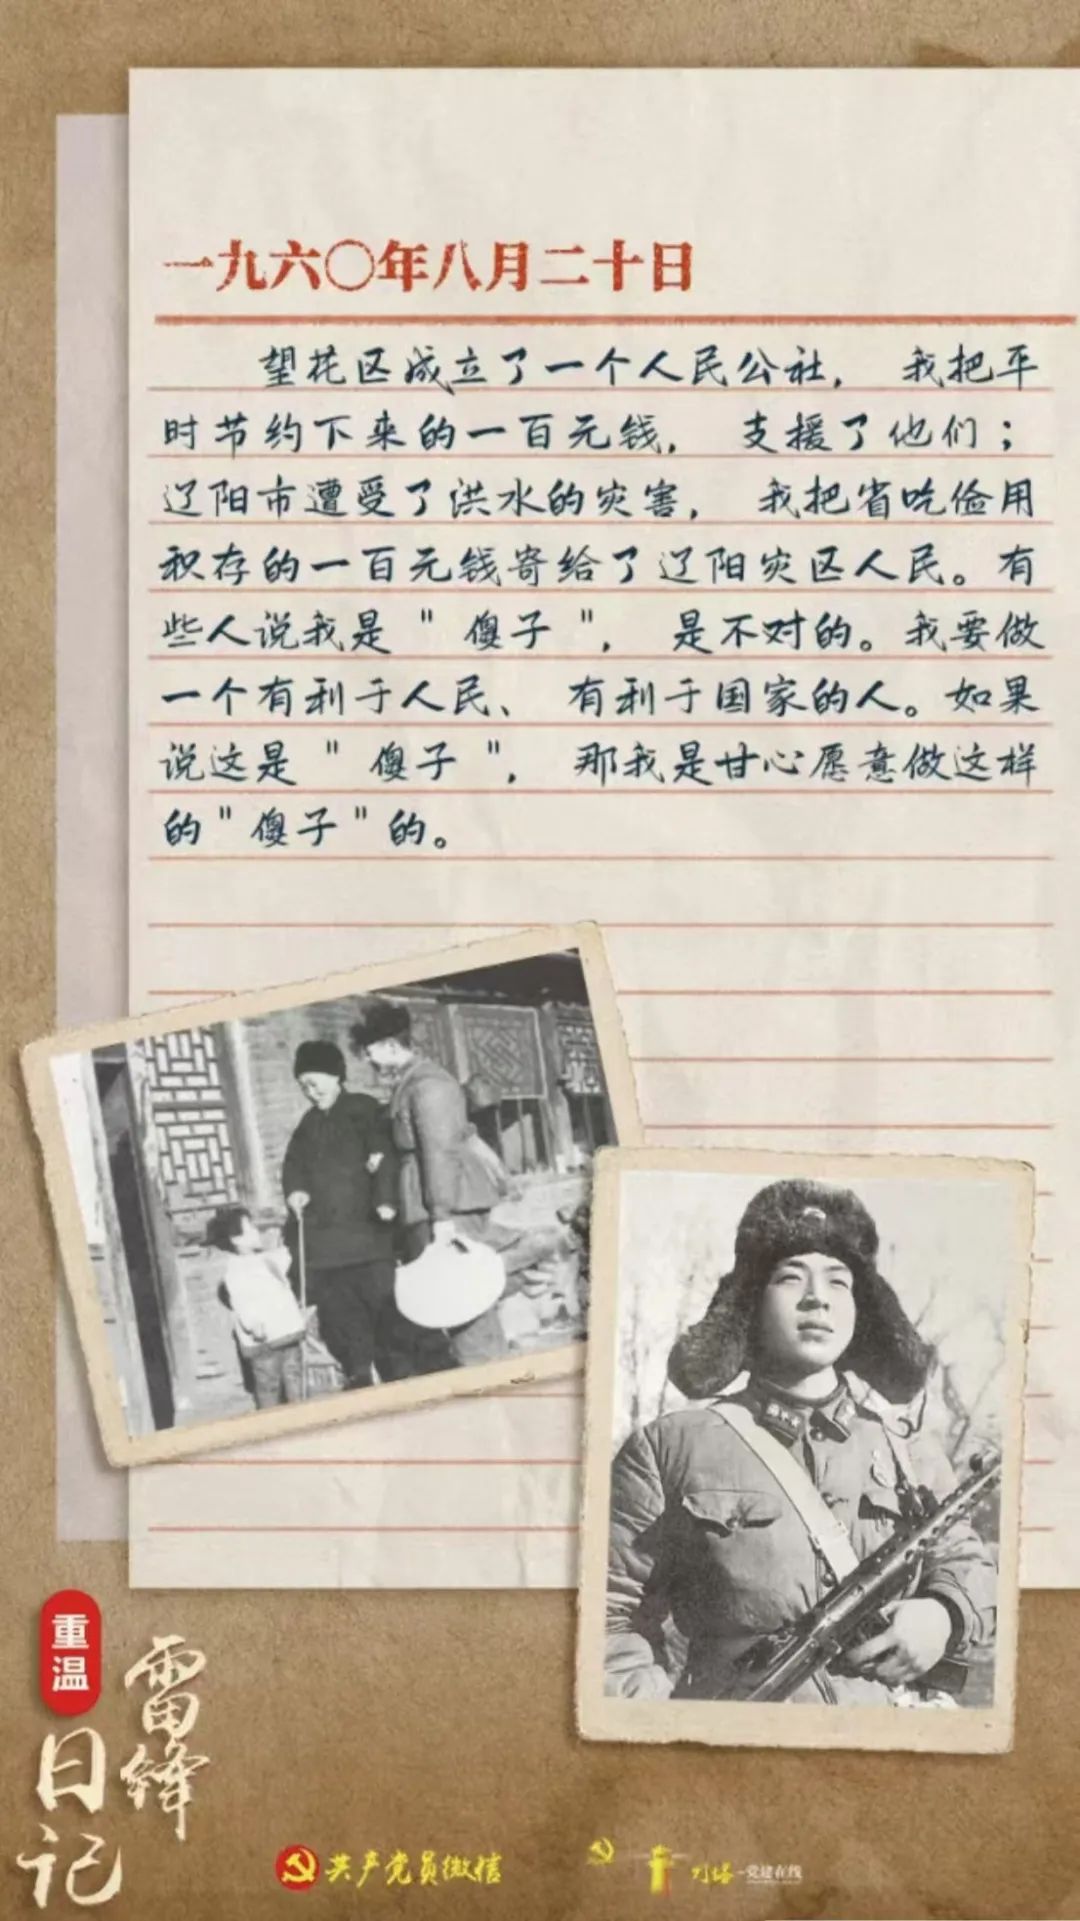 一九六〇年八月二十日
望花区成立了一个人民公社，我把平
时节约下来的一百元钱，支援了他们；
辽阳市遭受了洪水的灾害，我把省吃俭用
积存的一百元钱寄给了辽阳灾区人民。有
些人说我是"傻子"，是不对的。我要做
一个有利于人民、有利于国家的人。如果
说这是"傻子"，那我是甘心愿意做这样
的"傻子"的。
重温
雷锋
日记
共产党员微信
党建在线